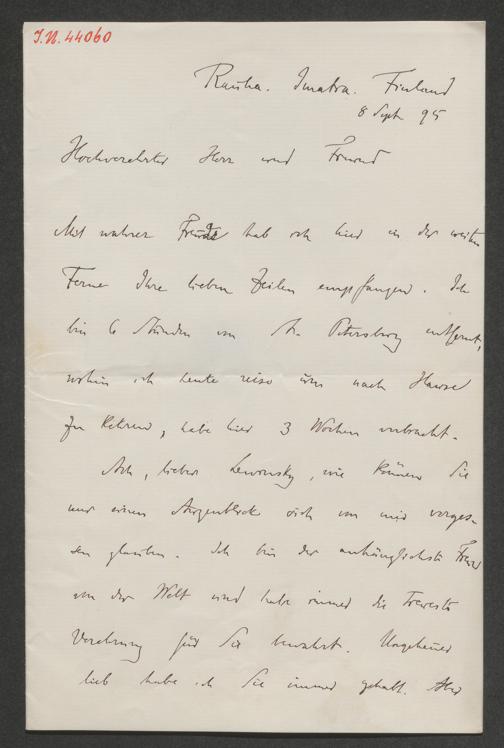 I.N. 44060
Rauha. Imatra. Finland
8 Sept. 95
Hochverehrter Herr und Freund
Mit wahrer Freude hab ich hier in der weiten
Ferne Ihre lieben Zeilen empfangen. Ich
bin 6 Stunden von St. Petersburg entfernt,
wohin ich heute reise um nach Hause
zu kehren, habe hier 3 Wochen verbracht.
Ach, lieber Lewinsky, wie können Sie
nur einen Augenblick sich von mir verges-
sen glauben. Ich bin der anhänglichste Freund
von der Welt und habe immer die treueste
Verehrung für Sie bewahrt. Ungeheuer
lieb habe ich Sie immer gehabt. Aber